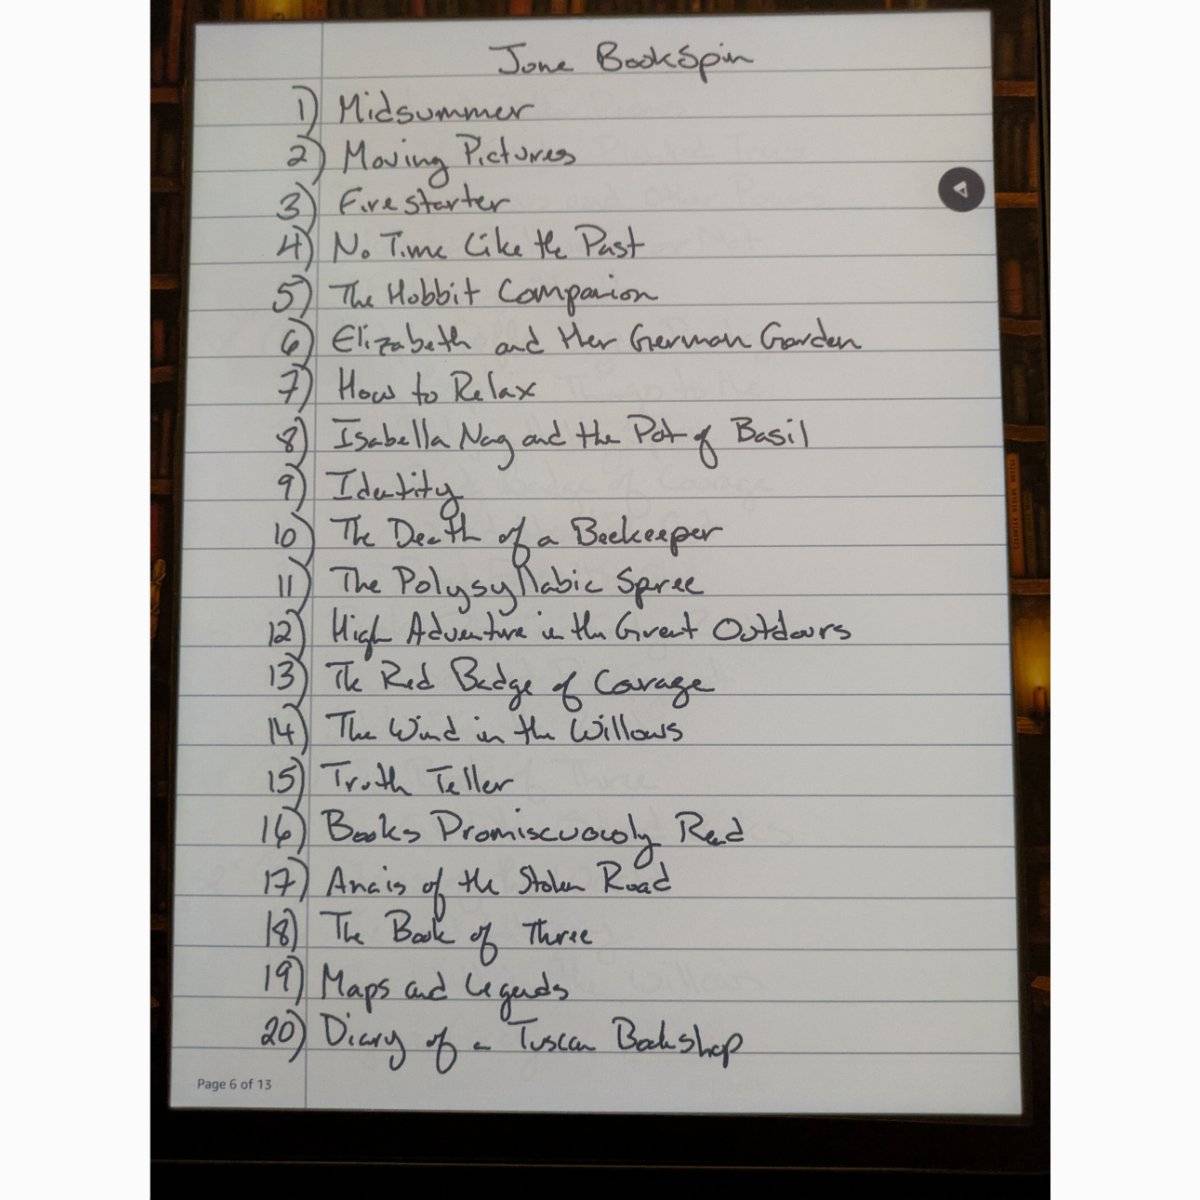 June BookSpin
1) Midsummer
2) Moving Pictures
3) Firestarter
4) No Time Like the Past
5) The Hobbit Companion
6) Elizabeth and Her German Garden
7) How to Relax
8) Isabella Nag and the Pot of Basil
9) Identity
10) The Death of a Beekeeper
11) The Polysyllabic Spree
12) High Adventure in the Great Outdoors
13) The Red Badge of Courage
14) The Wind in the Willows
15) Truth Teller
16) Books Promiscuously Read
17) Anais of the Stolen Road
18) The Book of Three
19) Maps and Legends
20) Diary of a Tuscan Bookshop
Page 6 of 13